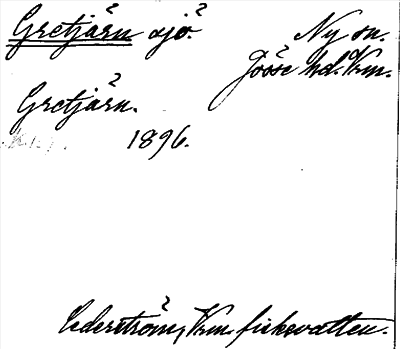 Gretjärn sjö.
Ny sn.
Jösse hd. Vrm.
Gretjärn.
1896.
Cederström, Vrm. fiskevatten.